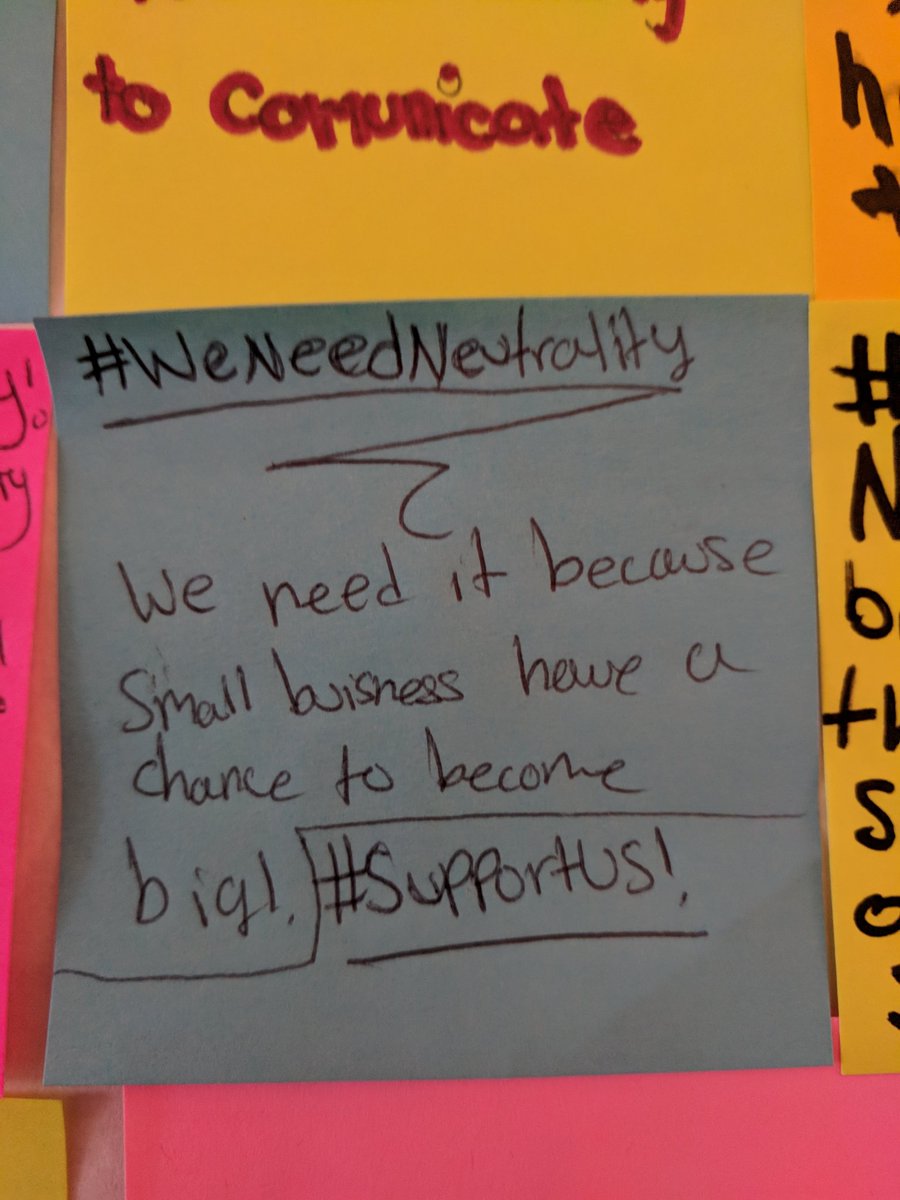 to Comunicate
#WeNeedNeutrality
We need it because
Small buisness have a
chance to become
big!.
#SupportUs!.